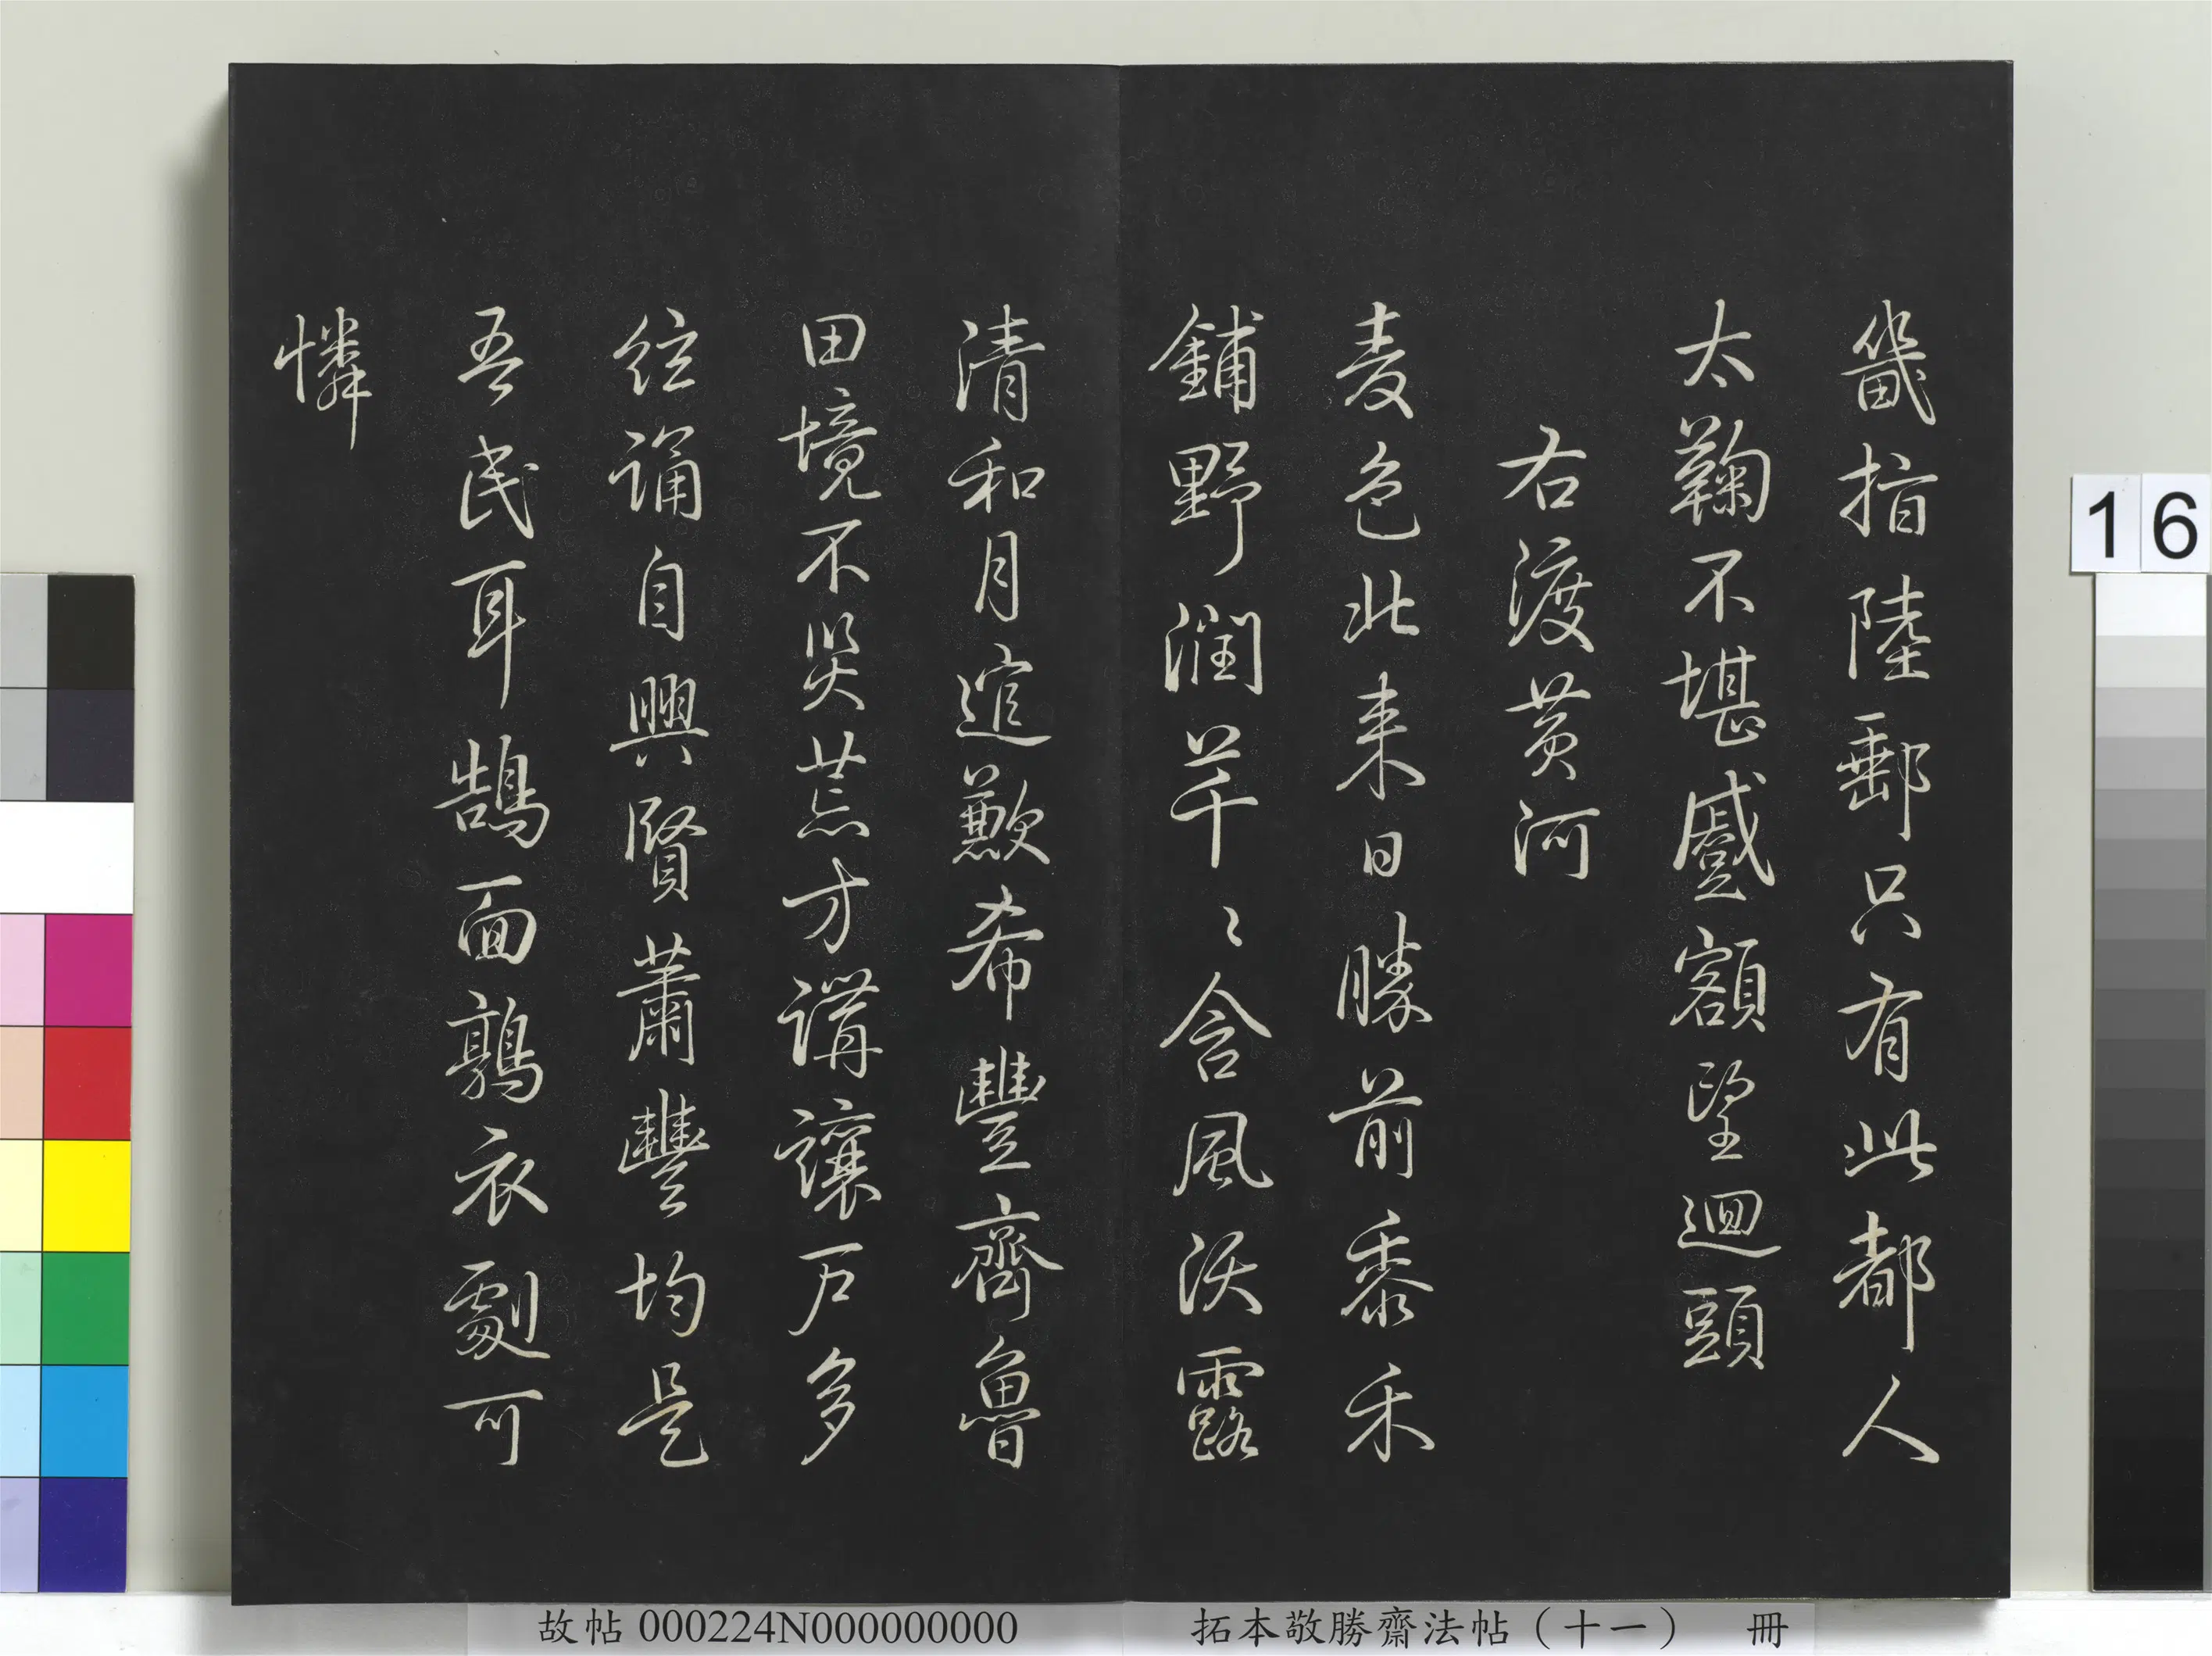 畿指陸郵只有此都人
太鞠不堪蹙額望迴頭
右渡黄河
麦色北来日勝前黍禾
鋪野潤芊〻含風沃露
清和月逭歉希豐齊魯
田境不災荒才講讓戸多
絃誦自興賢蕭豐均是
吾民耳鵠面鶉衣劇可
憐
16
故帖 000224N000000000
拓本敬勝齋法帖（十一） 冊